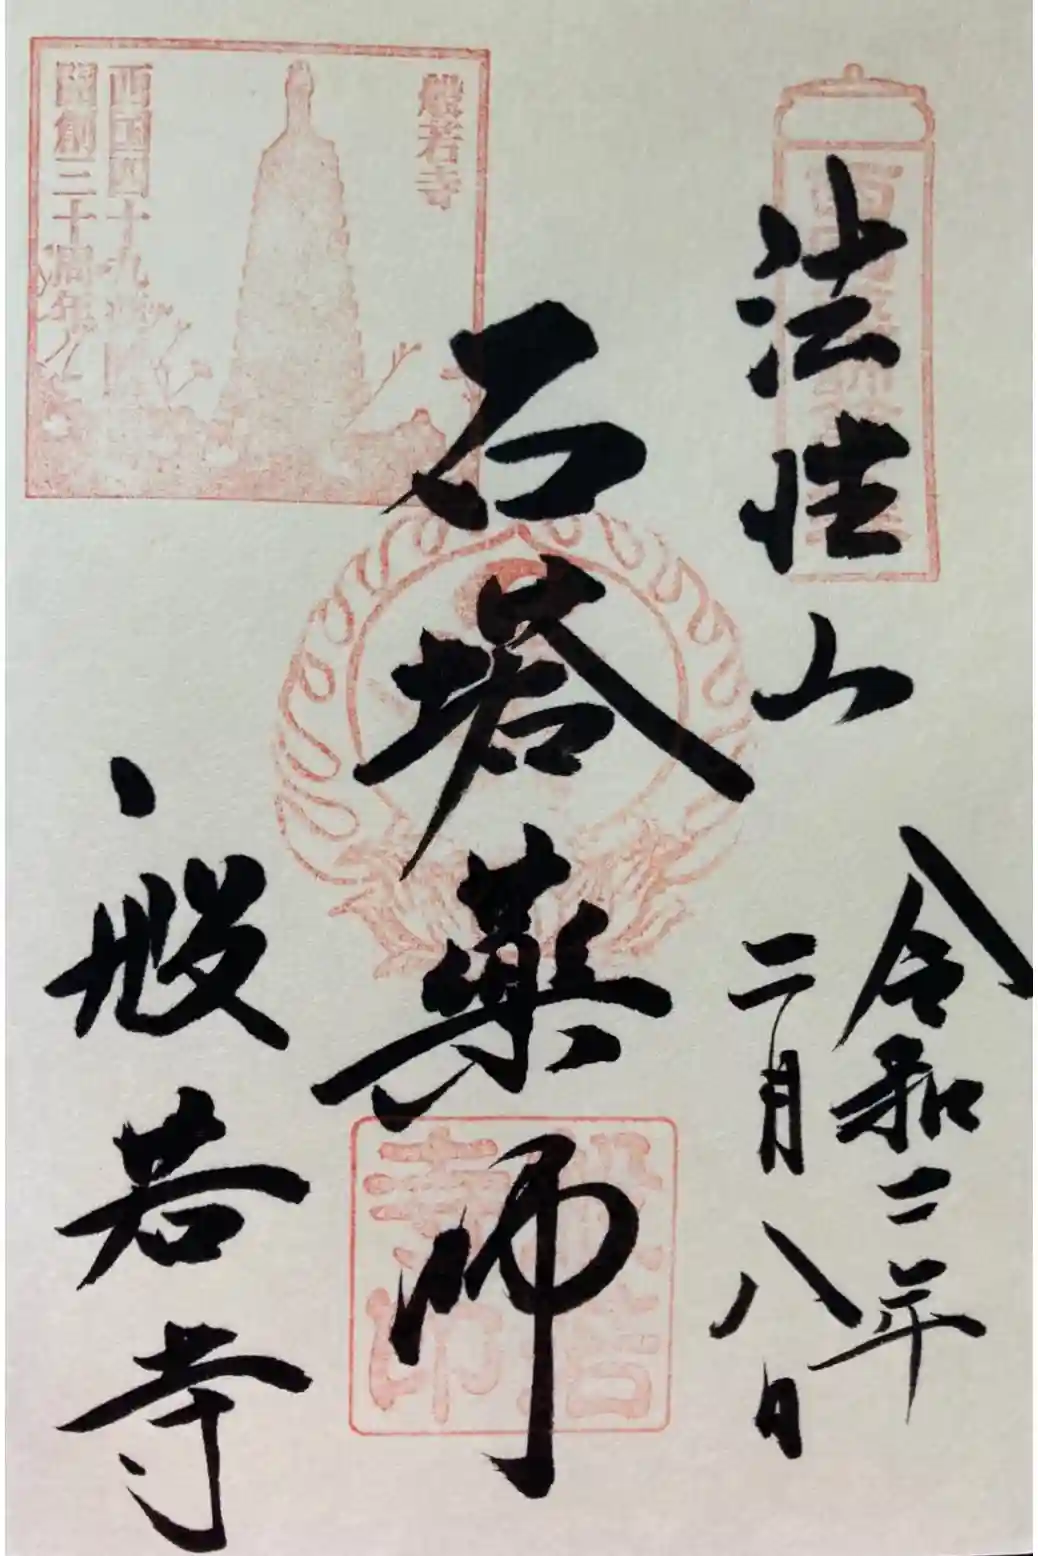 法性山
令和二年
二月八日
石塔薬師
般若寺
般若寺
西国四十九薬師
開創三十周年